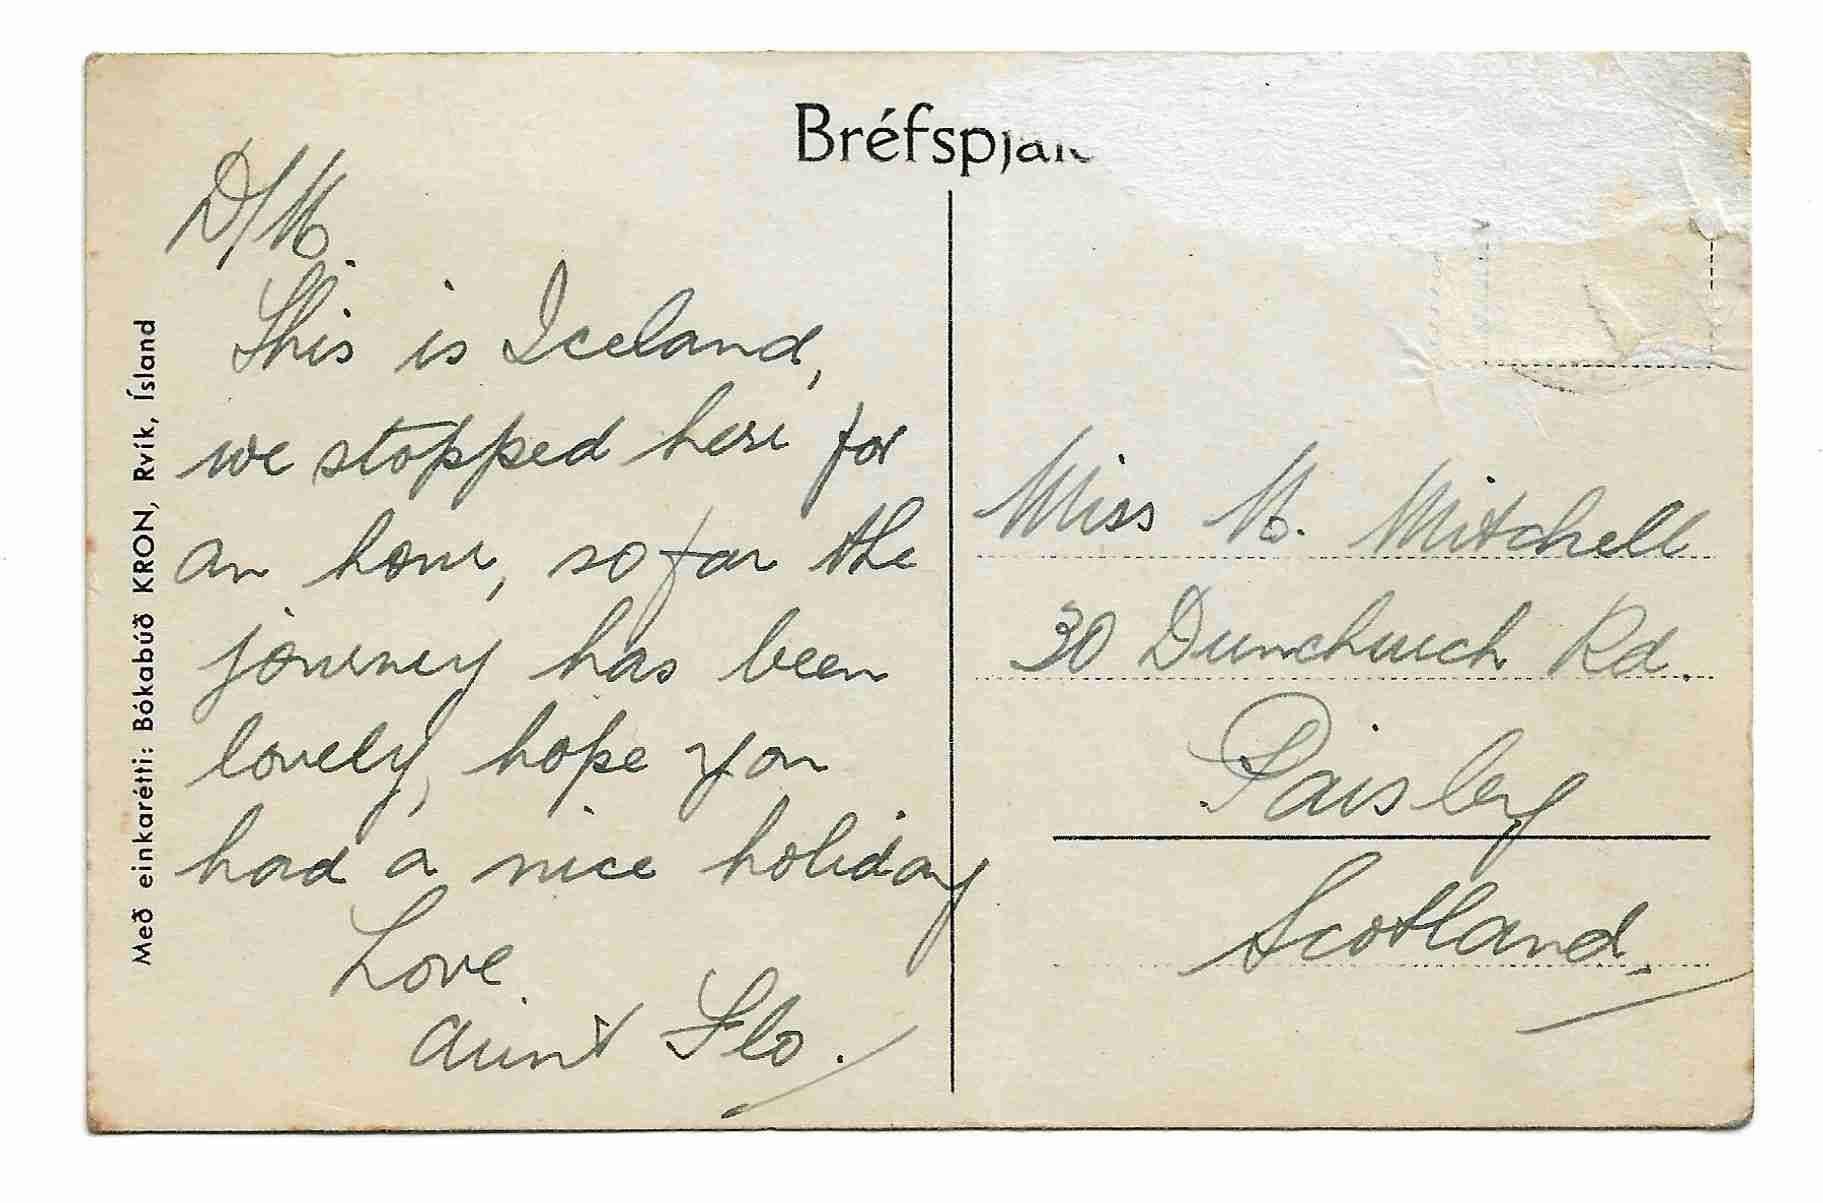 Bréfspja
D/M.
This is Iceland,
we stopped here for
an hour, so far the
journey has been
lovely, hope you
had a nice holiday
Love
Aunt Flo.
Miss M. Mitchell
30 Dunchurch Rd.
Paisley
Scotland.
Með einkarétti: Bókabúð KRON, Rvík, Ísland